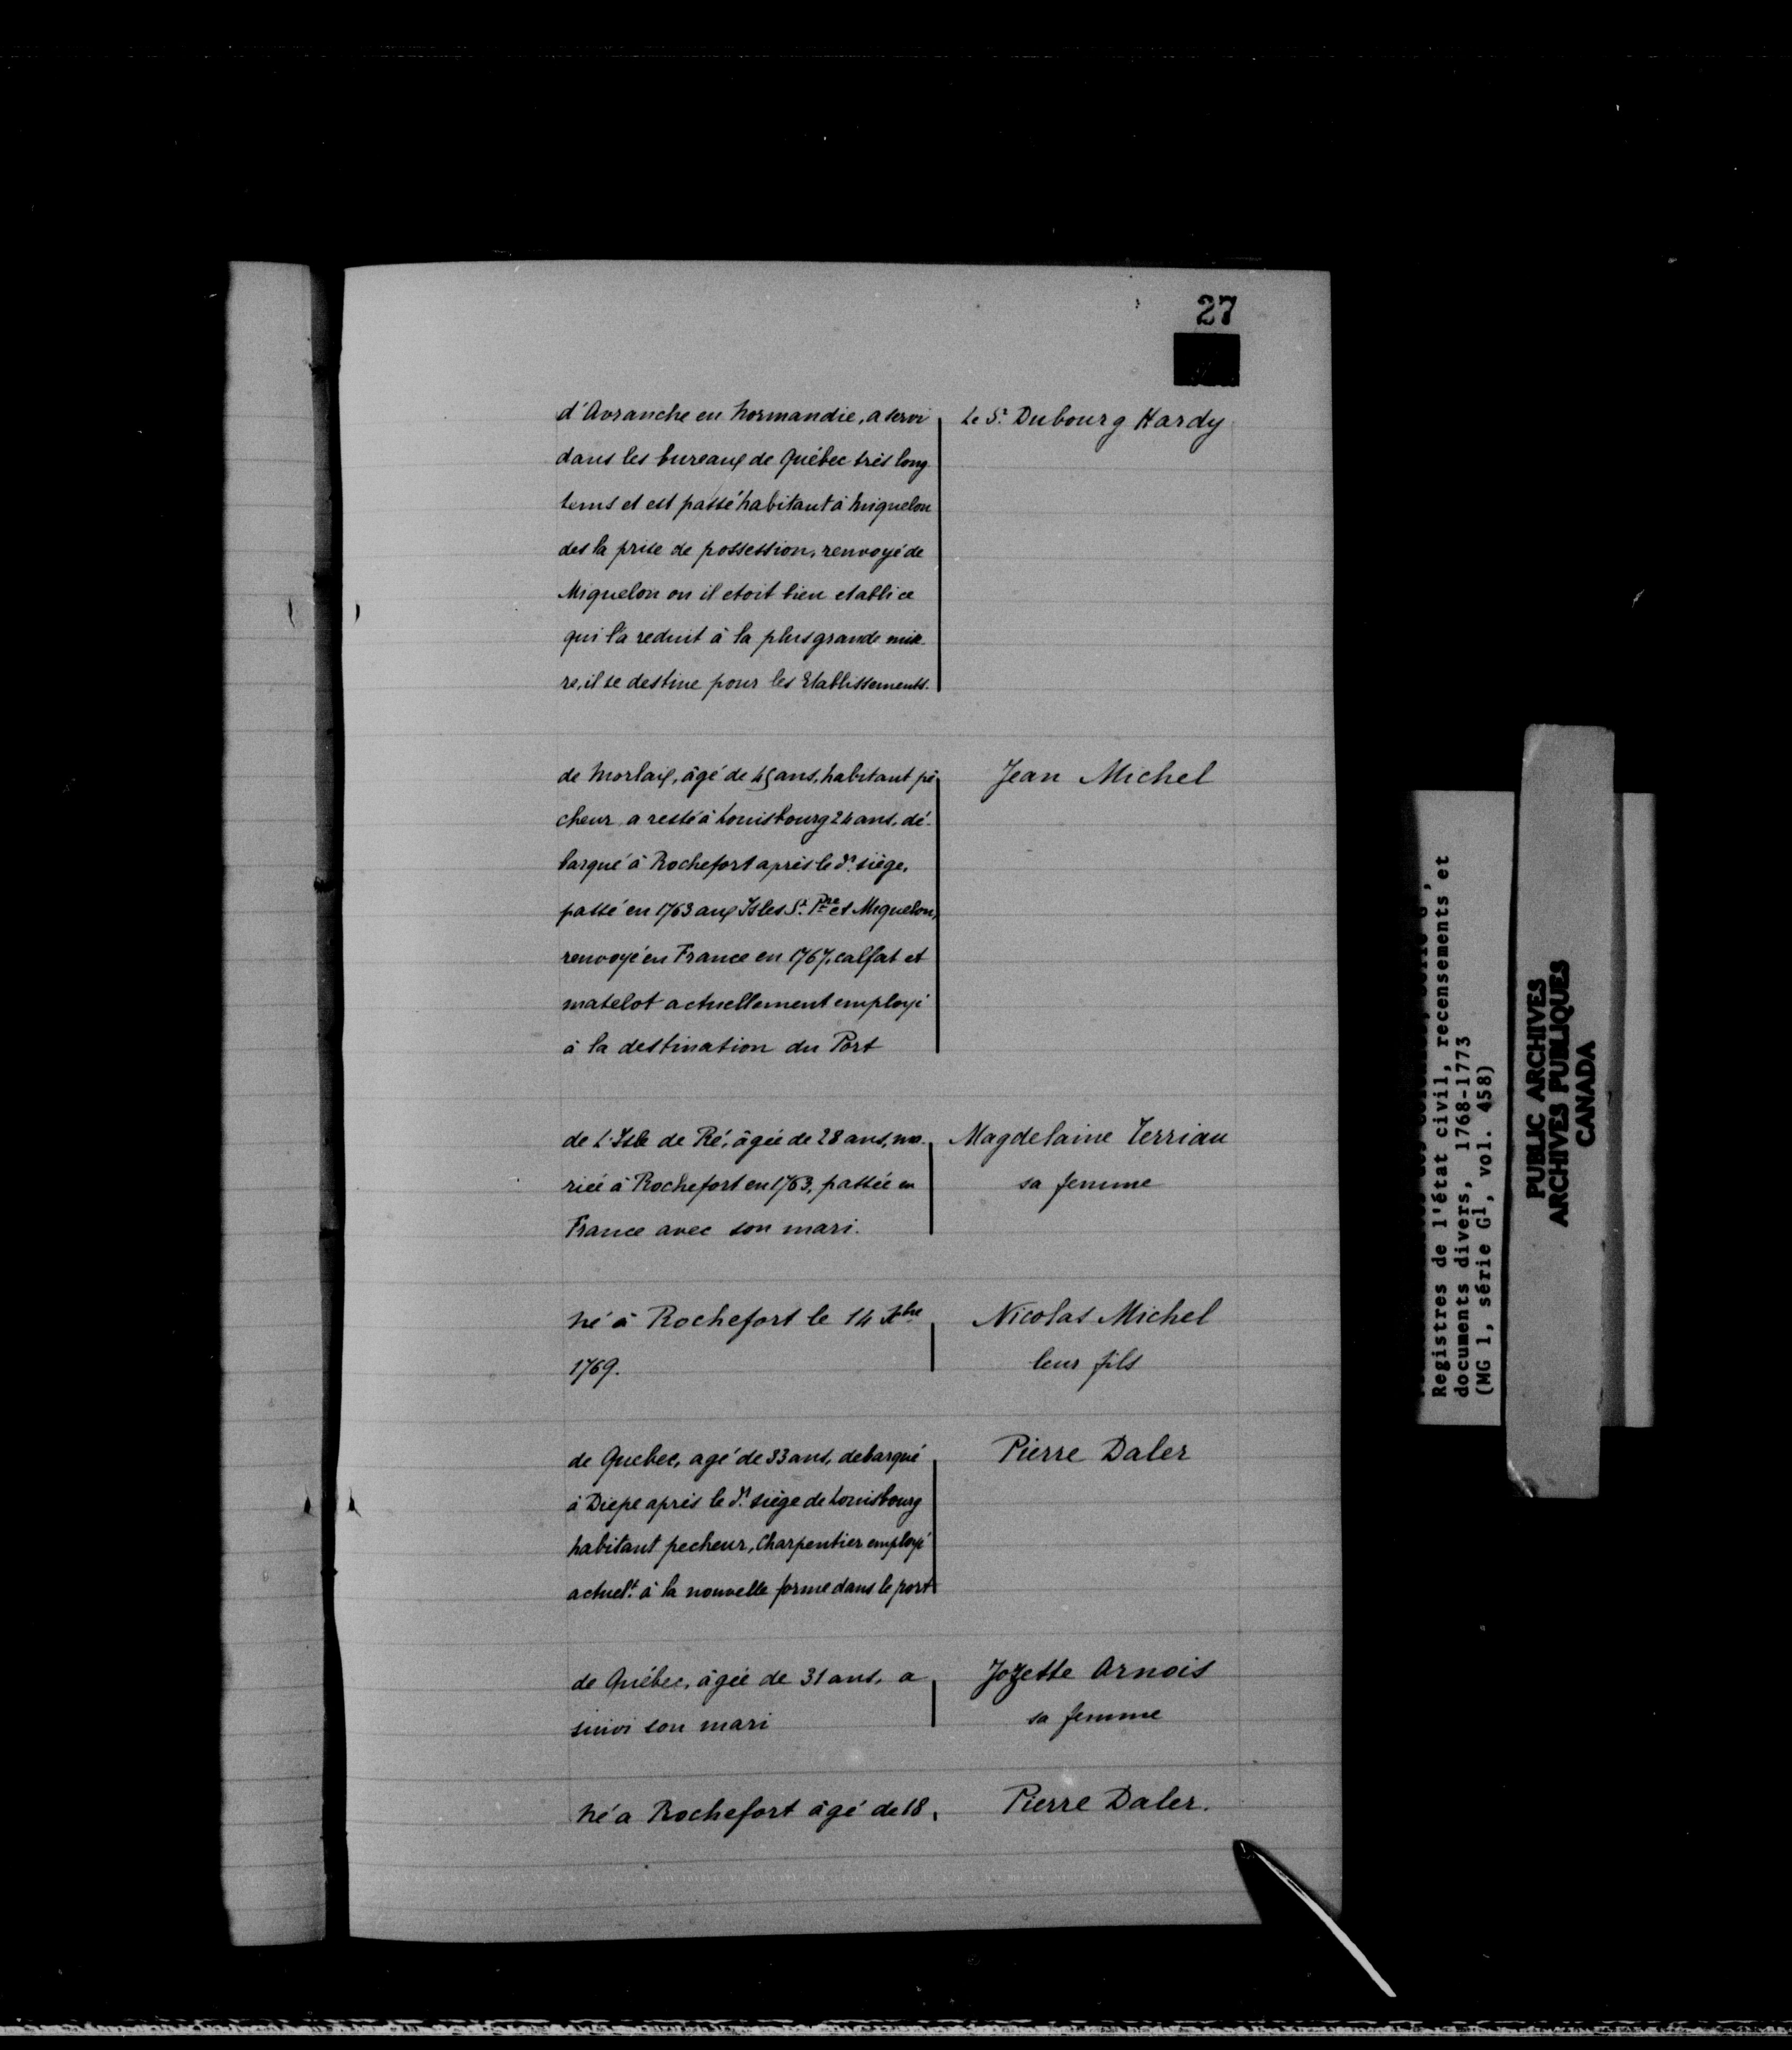 27
d'Avranche en Normandie, a servi
dans les bureaux de Québec très long
tems et est passé habitant à Miquelon
des la prise de possession, renvoyé de
Miquelon ou il etoit bien etabli ce
qui l'a reduit à la plus grande misè
re, il se destine pour les Etablissements.
Le Sr. Dubourg Hardy
de Morlaix, âgé de 45 ans, habitant pê
cheur, a resté à Louisbourg 24 ans, dé-
barqué à Rochefort après le dr. siège,
passé en 1763 aux Isles St. Pre et Miquelon,
renvoyé en France en 1767, calfat et
matelot actuellement employé
à la destination du Port
Jean Michel
de L'Isle de Ré, âgée de 28 ans, ma-
riée à Rochefort en 1763, passée en
France avec son mari.
Magdelaine Terriau
sa femme
né à Rochefort le 14
1769.
Nicolas Michel
leur fils
de Quebec, agé de 33 ans, debarqué
à Diepe après le dr. siège de Louisbourg
habitant pecheur, Charpentier employé
actuelt. à la nouvelle forme dans le port
Pierre Daler
de Québec, âgée de 31 ans, a
suivi son mari
Jozette Arnois
sa femme
né a Rochefort âgé de 18
Pierre Daler.
Registres de l'état civil, recensements et
documents divers, 1768-1773
(MG 1, série G1, vol. 458)
PUBLIC ARCHIVES
ARCHIVES PUBLIQUES
CANADA